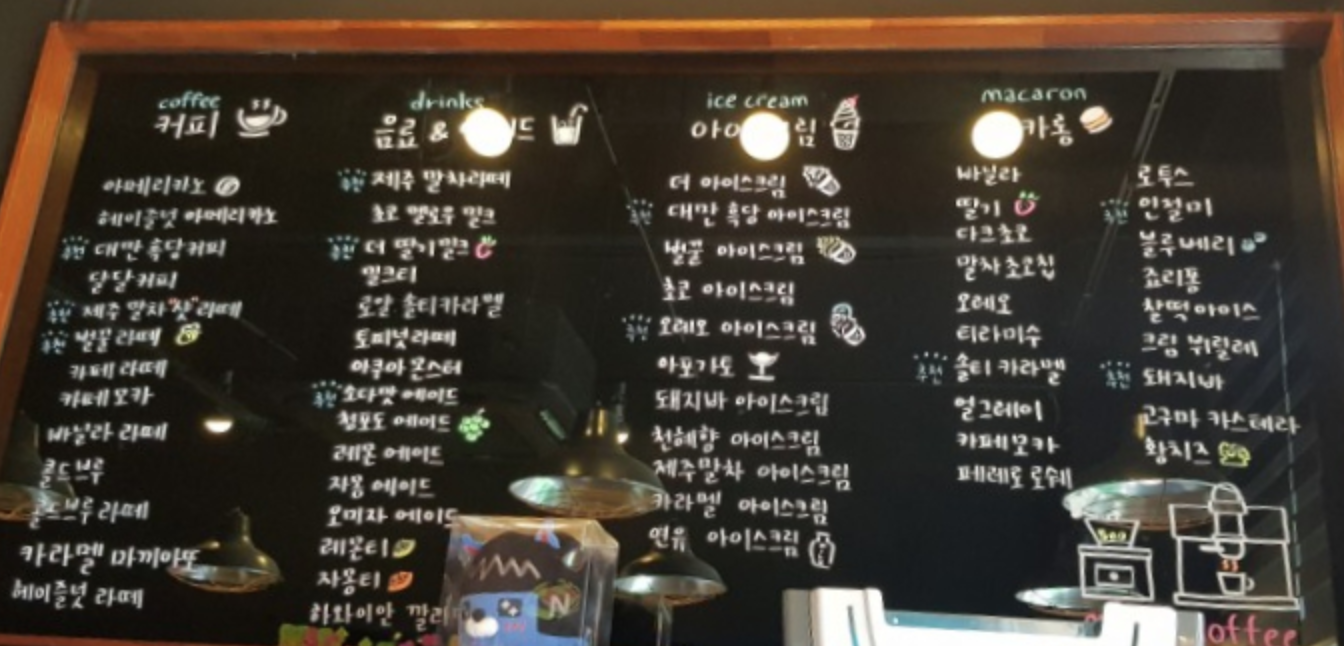 coffee
커피
아메리카노
헤이즐넛 아메리카노
추천 대만 흑당커피
달달커피
추천 제주 말차"샷"라떼
추천 벌꿀라떼
카페 라떼
카페모카
바닐라 라떼
콜드브루
콜드브루 라떼
카라멜 마끼아또
헤이즐넛 라떼
drinks
음료 &
추천 제주 말차라떼
초코 멜로우 밀크
추천 더 딸기밀크
밀크티
로얄 솔티카라멜
토피넛라떼
아쿠아 몬스터
추천 소다맛 에이드
청포도 에이드
레몬 에이드
자몽 에이드
오미자 에이드
레몬티
자몽티
하와이안
ice cream
더 아이스크림
추천 대만 흑당 아이스크림
벌꿀 아이스크림
초코 아이스크림
추천 오레오 아이스크림
아포가토
돼지바 아이스크림
천혜향 아이스크림
제주말차 아이스크림
카라멜 아이스크림
연유 아이스크림
macaron
카롱
바닐라
딸기
다크초코
말차초코칩
오레오
티라미수
추천 솔티 카라멜
얼그레이
카페모카
페레로 로쉐
로투스
추천 인절미
블루베리
죠리퐁
찰떡아이스
크림 뷔릴레
추천 돼지바
고구마 카스테라
황치즈